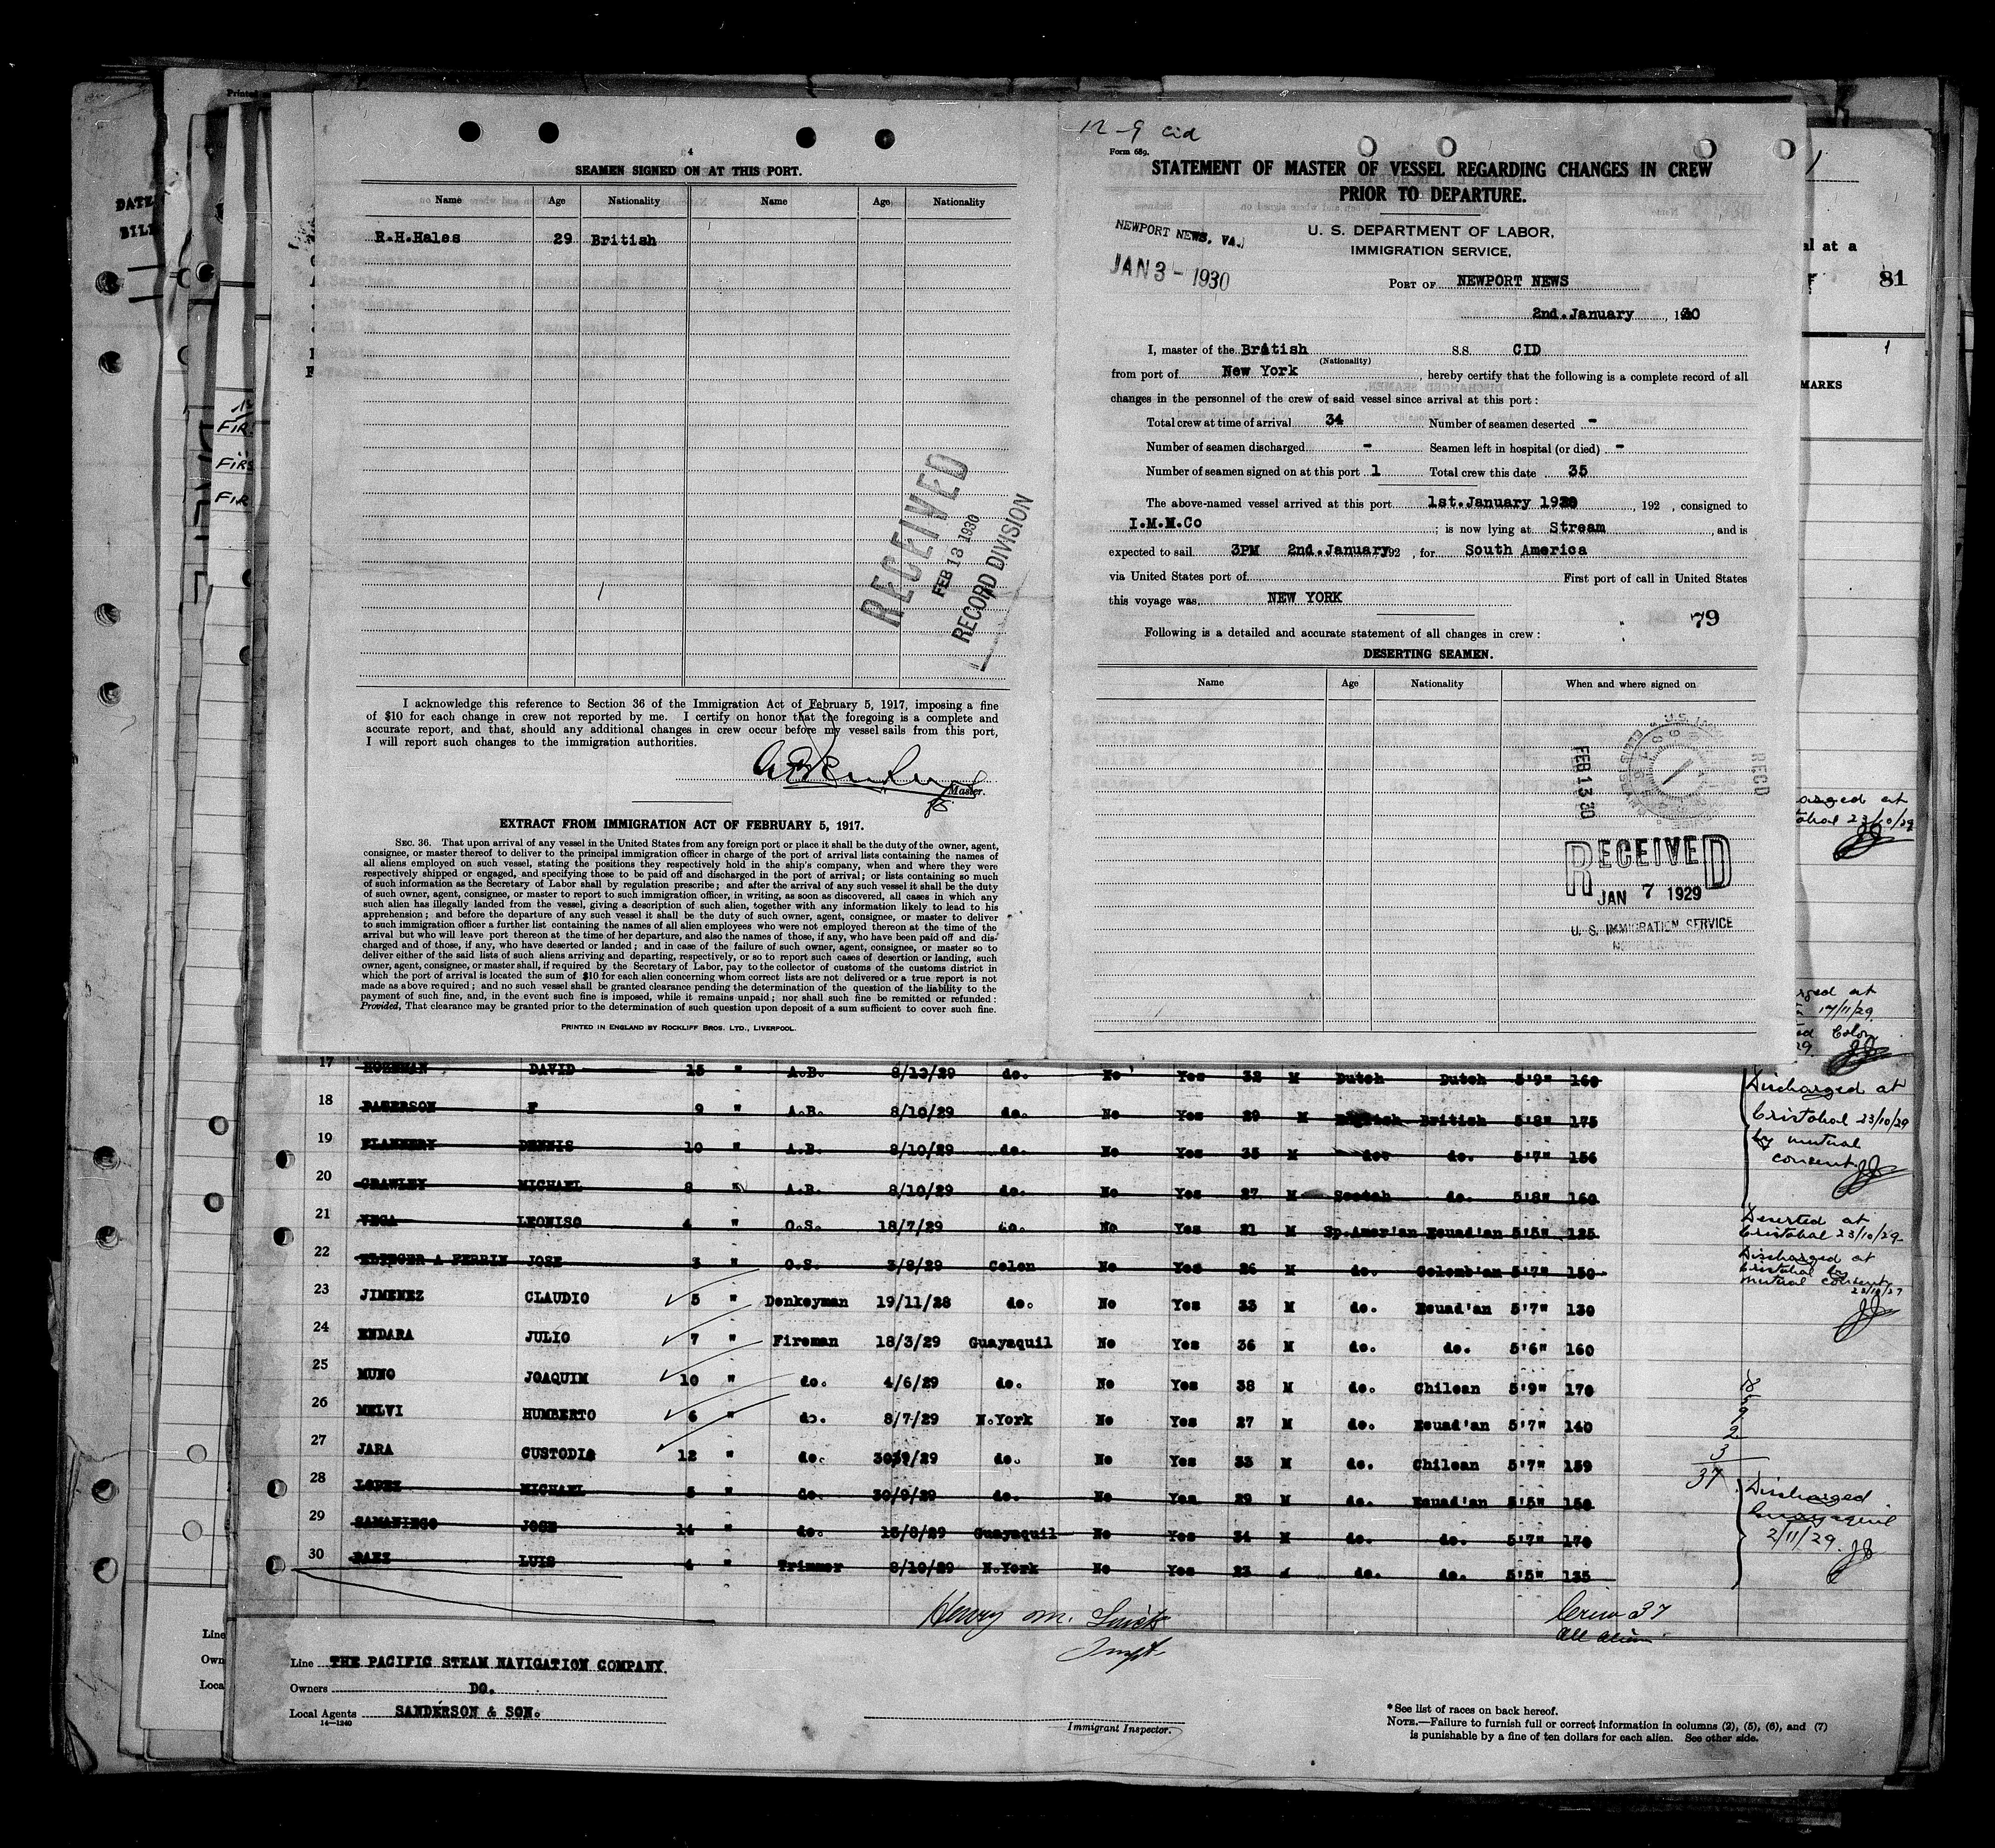 4
SEAMEN SIGNED ON AT THIS PORT.
Name Age Nationality Name Age Nationality
R.H.Hales 29 British
RECEIVED
FEB 18 1930
RECORD DIVISION
I acknowledge this reference to Section 36 of the Immigration Act of February 5, 1917, imposing a fine
of $10 for each change in crew not reported by me. I certify on honor that the foregoing is a complete and
accurate report, and that, should any additional changes in crew occur before my vessel sails from this port,
I will report such changes to the immigration authorities.
Master.
EXTRACT FROM IMMIGRATION ACT OF FEBRUARY 5, 1917.
SEC. 36. That upon arrival of any vessel in the United States from any foreign port or place it shall be the duty of the owner, agent,
consignee, or master thereof to deliver to the principal immigration officer in charge of the port of arrival lists containing the names of
all aliens employed on such vessel, stating the positions they respectively hold in the ship's company, when and where they were
respectively shipped or engaged, and specifying those to be paid off and discharged in the port of arrival; or lists containing so much
of such information as the Secretary of Labor shall by regulation prescribe; and after the arrival of any such vessel it shall be the duty
of such owner, agent, consignee, or master to report to such immigration officer, in writing, as soon as discovered, all cases in which any
such alien has illegally landed from the vessel, giving a description of such alien, together with any information likely to lead to his
apprehension; and before the departure of any such vessel it shall be the duty of such owner, agent, consignee, or master to deliver
to such immigration officer a further list containing the names of all alien employees who were not employed thereon at the time of the
arrival but who will leave port thereon at the time of her departure, and also the names of those, if any, who have been paid off and dis-
charged and of those, if any, who have deserted or landed; and in case of the failure of such owner, agent, consignee, or master so to
deliver either of the said lists of such aliens arriving and departing, respectively, or so to report such cases of desertion or landing, such
owner, agent, consignee, or master shall, if required by the Secretary of Labor, pay to the collector of customs of the customs district in
which the port of arrival is located the sum of $10 for each alien concerning whom correct lists are not delivered or a true report is not
made as above required; and no such vessel shall be granted clearance pending the determination of the question of the liability to the
payment of such fine, and, in the event such fine is imposed, while it remains unpaid; nor shall such fine be remitted or refunded:
Provided, That clearance may be granted prior to the determination of such question upon deposit of a sum sufficient to cover such fine.
PRINTED IN ENGLAND BY ROCKLIFF BROS. LTD., LIVERPOOL.
12-9 Cid
Form 689.
STATEMENT OF MASTER OF VESSEL REGARDING CHANGES IN CREW
PRIOR TO DEPARTURE.
NEWPORT NEWS, VA.
JAN 3 - 1930
U. S. DEPARTMENT OF LABOR,
IMMIGRATION SERVICE,
PORT OF NEWPORT NEWS
2nd.January, 1930
I, master of the British S.S. CID
(Nationality)
from port of New York, hereby certify that the following is a complete record of all
changes in the personnel of the crew of said vessel since arrival at this port:
Total crew at time of arrival 34 Number of seamen deserted -
Number of seamen discharged - Seamen left in hospital (or died) -
Number of seamen signed on at this port 1 Total crew this date 35
The above-named vessel arrived at this port 1st.January 1930, 192 , consigned to
I.M.M.Co ; is now lying at Stream, and is
expected to sail 3PM 2nd.January 192 , for South America
via United States port of First port of call in United States
this voyage was NEW YORK
79
Following is a detailed and accurate statement of all changes in crew:
DESERTING SEAMEN.
Name Age Nationality When and where signed on
FEB 13 30
RECD
RECEIVED
JAN 7 1929
U. S. IMMIGRATION SERVICE
DATE
BILL
FIR.
FIRS
FIR
al at a
81
1
MARKS
17 DAVID 15 " A.B. 8/10/29 do. No Yes 32 M Dutch Dutch 5'9" 160
18 PATERSON F 9 " A.B. 8/10/29 do. No Yes 29 M British British 5'8" 175
19 FLANNERY DENNIS 10 " A.B. 8/10/29 do. No Yes 35 M do. do. 5'7" 156
20 CRAWLEY MICHAEL 8 " A.B. 8/10/29 do. No Yes 27 M Scotch do. 5'8" 160
21 VEGA LEONISO 4 " O.S. 18/7/29 do. No Yes 21 M Sp.Amer'an Ecuad'an 5'5" 125
22 JOSE 3 " O.S. 3/8/29 Colon No Yes 26 M do. Colomb'an 5'7" 150
23 JIMENEZ CLAUDIO 5 " Donkeyman 19/11/28 do. No Yes 33 M do. Ecuad'an 5'7" 130
24 ENDARA JULIO 7 " Fireman 18/3/29 Guayaquil No Yes 36 M do. do. 5'6" 160
25 MUNO JOAQUIM 10 " do. 4/6/29 do. No Yes 38 M do. Chilean 5'9" 170
26 MELVI HUMBERTO 6 " do. 8/7/29 N.York No Yes 27 M do. Ecuad'an 5'7" 140
27 JARA CUSTODIO 12 " do. 30/9/29 do. No Yes 33 M do. Chilean 5'7" 159
28 LOPEZ MICHAEL 5 " do. 30/9/29 do. No Yes 29 M do. Ecuad'an 5'5" 150
29 SAMANIEGO JOSE 14 " do. 15/8/29 Guayaquil No Yes 34 M do. do. 5'7" 170
30 PAEZ LUIS 4 " Trimmer 8/10/29 N.York No Yes 23 M do. do. 5'5" 135
Discharged at
Cristobal 23/10/29
by mutual
consent. JJ
Deserted at
Cristobal 23/10/29
Discharged at
Cristobal by
mutual consent
JJ
18
5
9
2
3
37
Discharged
Guayaquil
2/11/29.
Crew 37
All alien
Line THE PACIFIC STEAM NAVIGATION COMPANY.
Owners DO.
Local Agents SANDERSON & SON.
14-1240
Immigrant Inspector.
*See list of races on back hereof.
NOTE.—Failure to furnish full or correct information in columns (2), (5), (6), and (7)
is punishable by a fine of ten dollars for each alien. See other side.
Line
Own
Loca